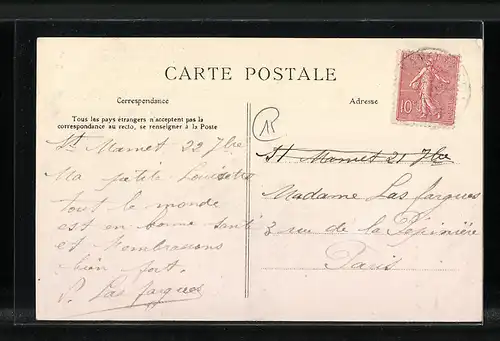 CARTE POSTALE
Correspondance
Adresse
Tous les pays étrangers n'acceptent pas la
correspondance au recto, se renseigner à la Poste
10 c
St Mamet 22 7bre
Ma petite Louisette
tout le monde
est en bonne santé
et t'embrassons
bien fort.
P. Las fargues
St Mamet 21 7bre
Madame Las fargues
3 rue de la Pépinière
Paris